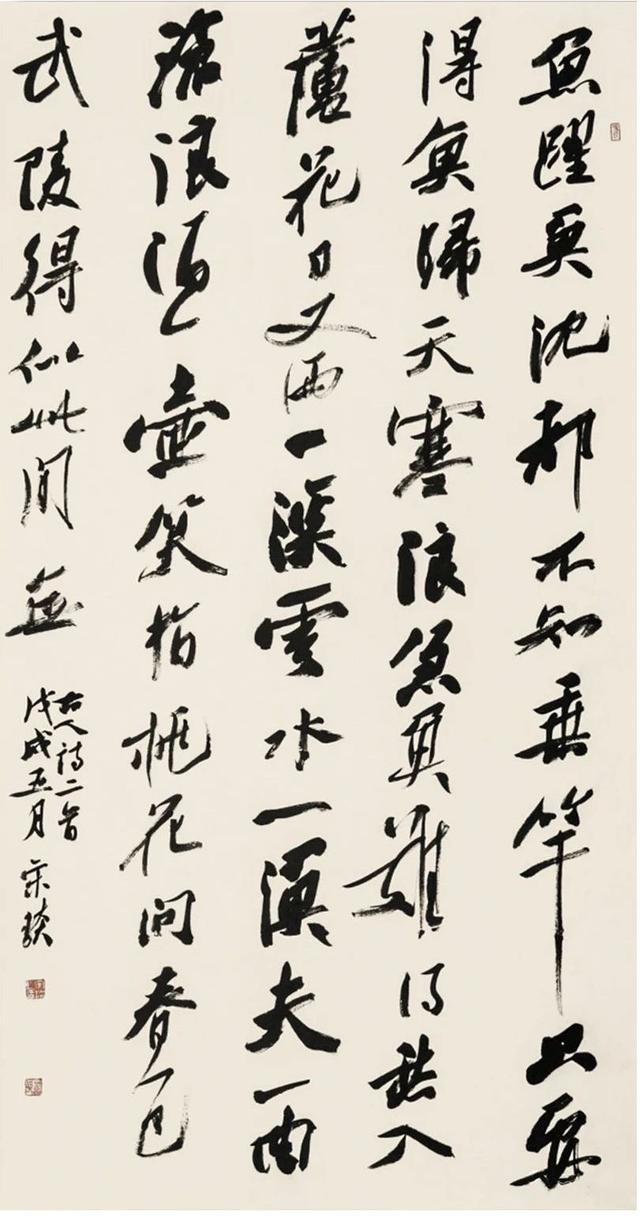 魚躍魚沈都不知垂竿只要
得魚歸天寒浪急魚難得愁入
蘆花日又西一溪雲水一漁夫一曲
滄浪酒一壺笑指桃花問春色
武陵得似此間無
古人詩二首
戊戌五月宋